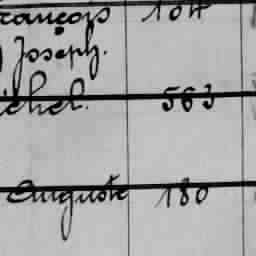 François 104
Joseph.
Michel. 563
Auguste 180